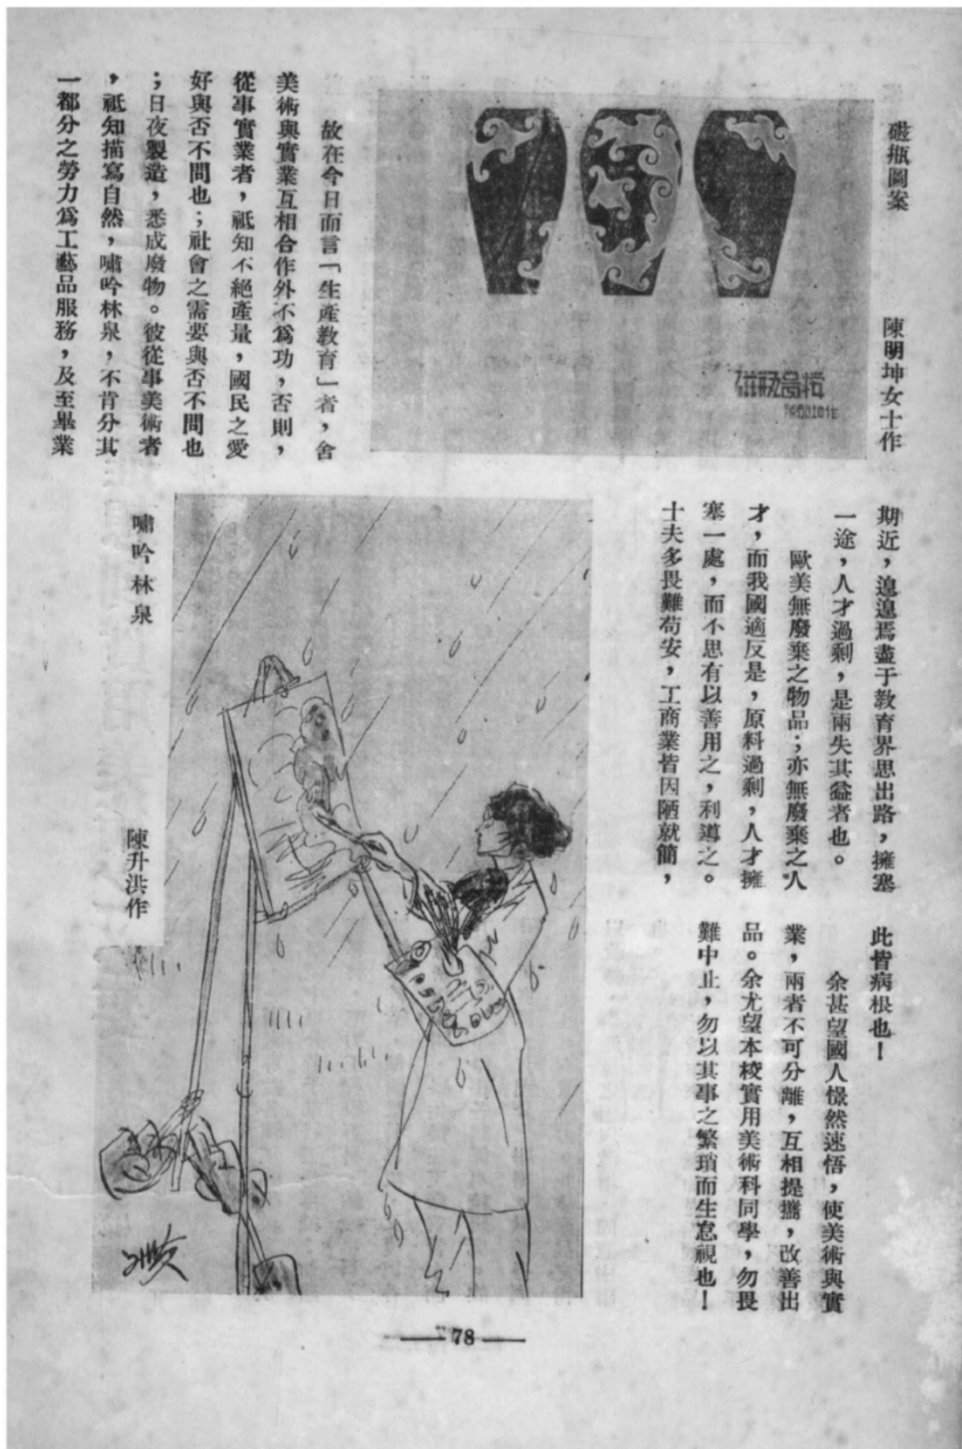 磁瓶圖案
陳明坤女士作
故在今日而言「生產教育」者，舍
美術與實業互相合作外不爲功，否則，
從事實業者，祇知不絕產量，國民之愛
好與否不問也；社會之需要與否不問也
；日夜製造，悉成廢物。彼從事美術者
，祇知描寫自然，嘯吟林泉，不肯分其
一部分之勞力爲工藝品服務，及至畢業
期近，遑遑焉盡于教育界思出路，擁塞
一途，人才過剩，是兩失其益者也。
歐美無廢棄之物品；亦無廢棄之人
才，而我國適反是，原料過剩，人才擁
塞一處，而不思有以善用之，利導之。
士夫多畏難苟安，工商業皆因陋就簡，
此皆病根也！
余甚望國人憬然速悟，使美術與實
業，兩者不可分離，互相提攜，改善出
品。余尤望本校實用美術科同學，勿畏
難中止，勿以其事之繁瑣而生怠視也！
嘯吟林泉
陳升洪作
78